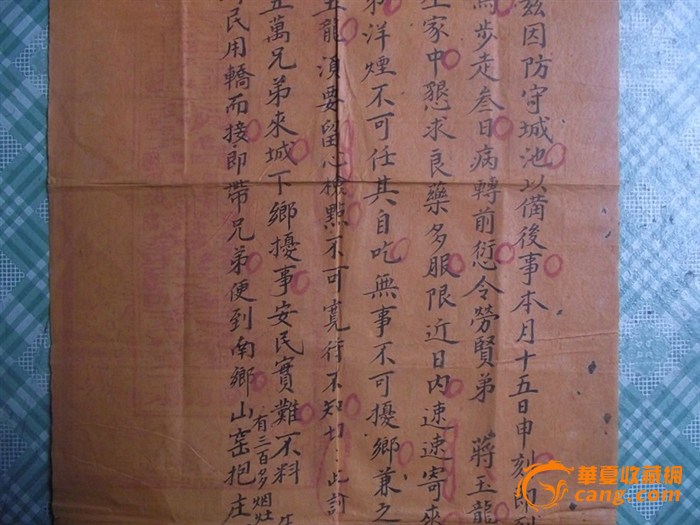 茲因防守城池以備後事本月十五日申刻即到
馬步走叁日病轉前愆令勞賢弟 蔣玉龍
家中懇求良藥多服限近日內速速寄來
洋煙不可任其自吃無事不可擾鄉兼之
五龍須要留心檢點不可寬待不知切:此訂
五萬兄弟來城下鄉擾事安民實難不料
有三百多烟灶
民用轎而接即帶兄弟便到南鄉山窑抱庄
華夏收藏網
cang.com